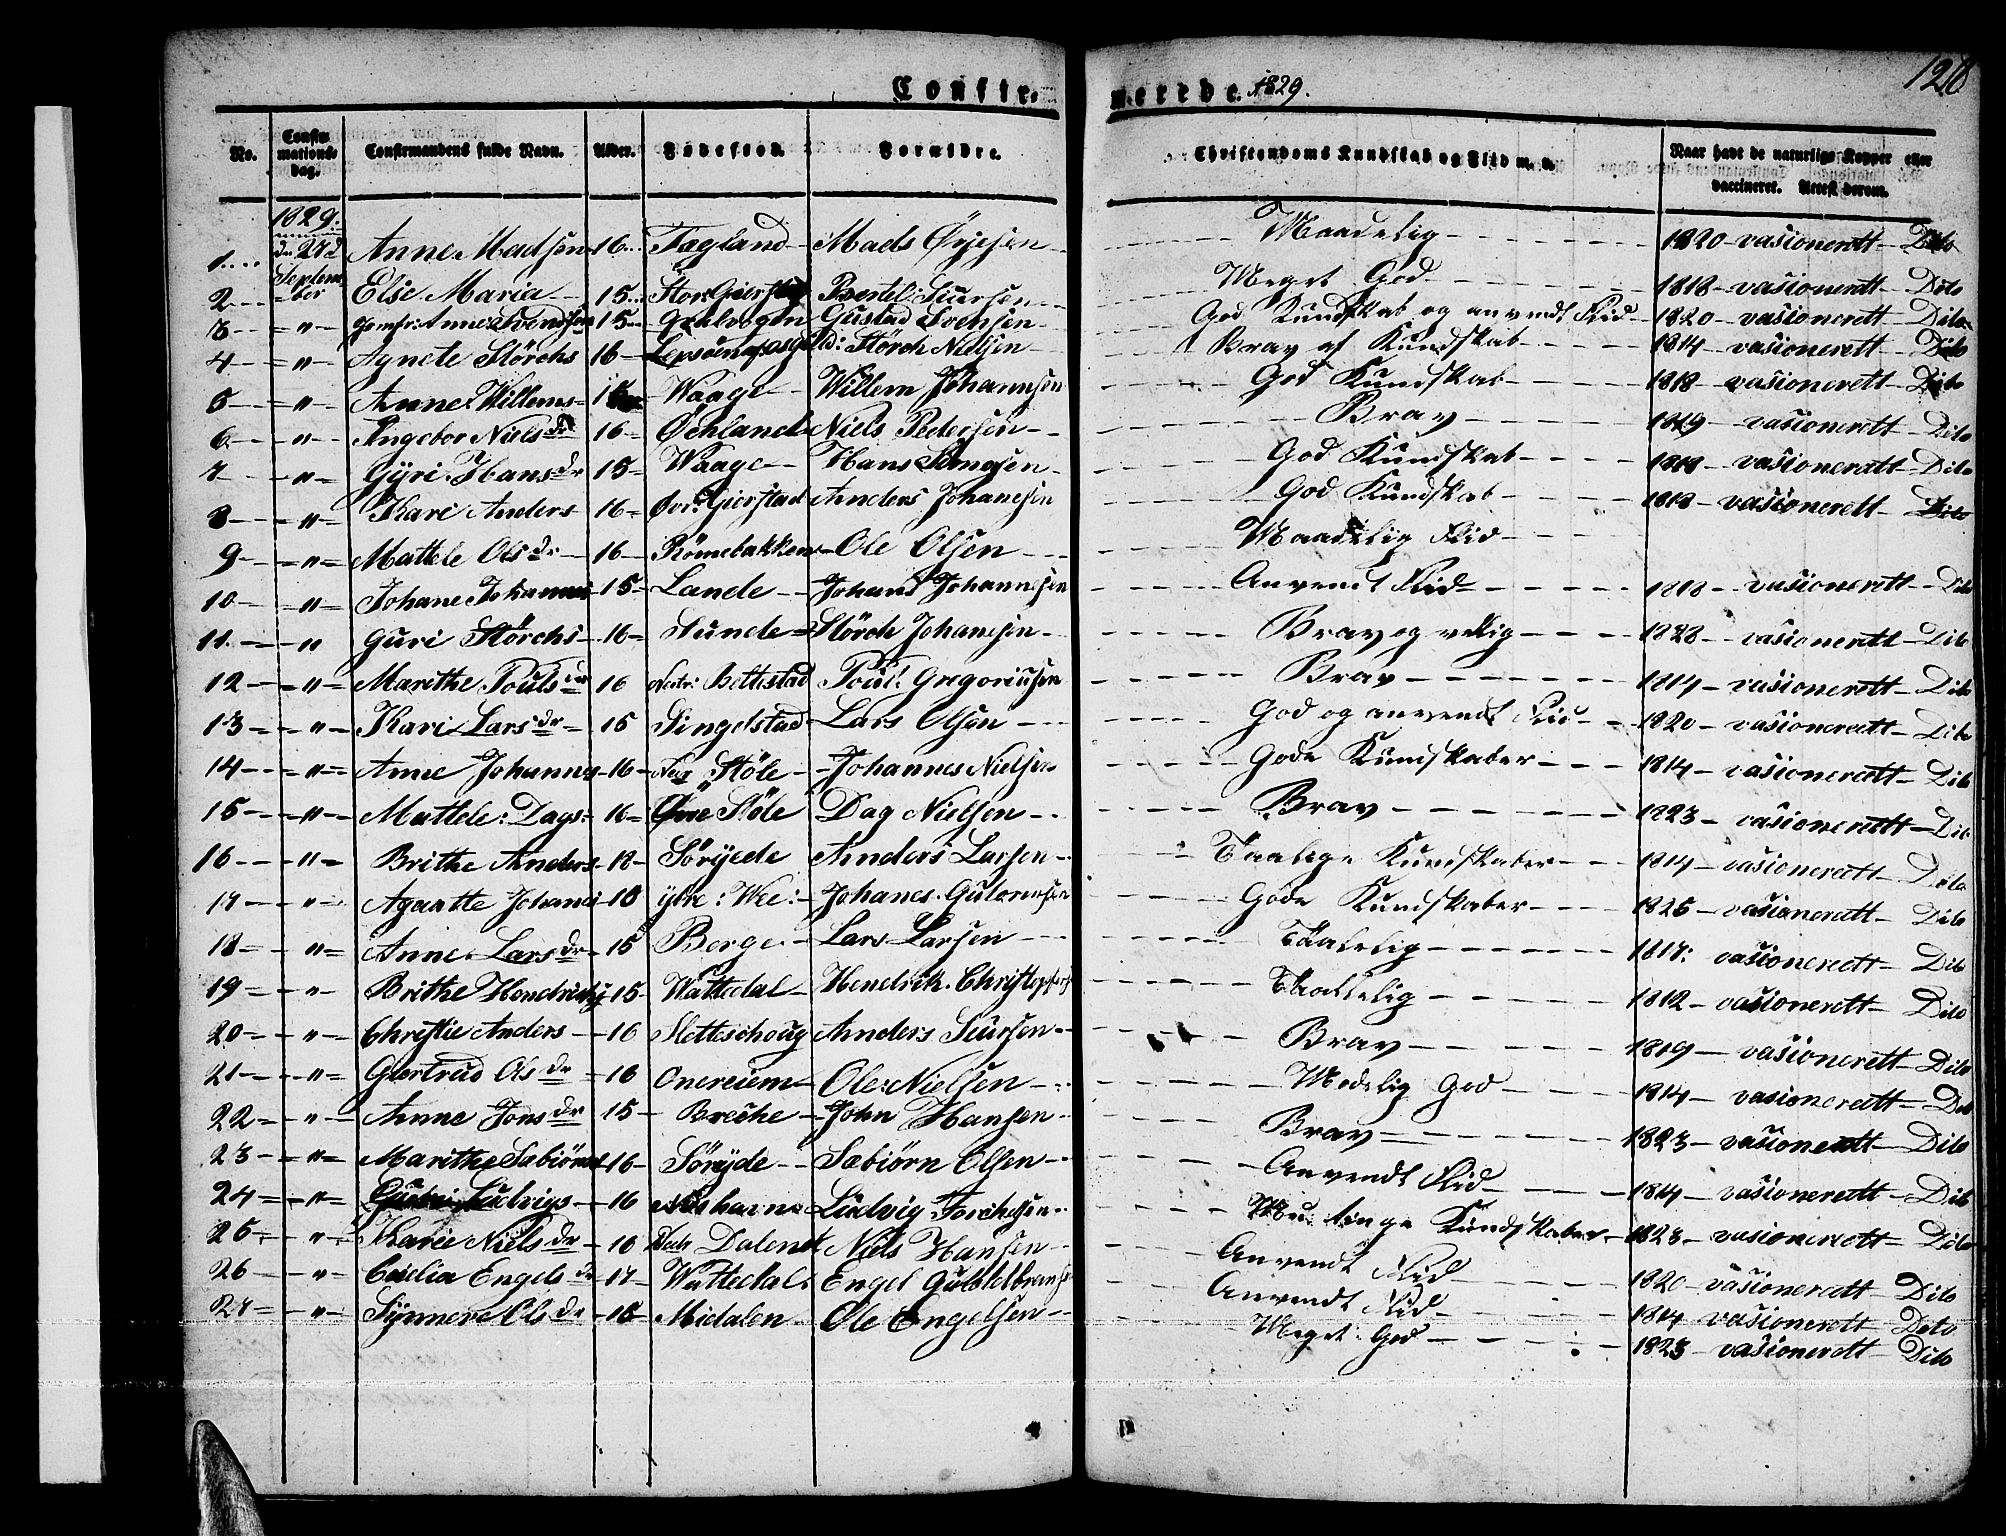 Confir-
merede 1829.
128
No.
Confir-
mations-
dag.
Confirmandens fulde Navn.
Alder.
Fødested.
Forældre.
Christendoms Kundskab og Flid m. v.
Naar havt de naturlige Kopper eller
vaccineret. Attest derom.
1829.
1 dn 27d Anne Madsen 16 Fægland Mads Øyesen Maadelig 1820 vasionerett Dito
Septem-
2 ber Else Maria 15 Stor Gierstad Bertel Siursen Meget God 1818 vasionerett Dito
3 " Jomfr: Anne Svendsen 15 Gustad Svensen God Kundskab og anvendt Flid 1820 vasionerett Dito
4 " Agnete Störchs 16 Störch Nielsen Brav af Kundskab 1814 vasionerett Dito
5 " Anne Willems 16 Waage Willem Johannsen God Kundskab 1818 vasionerett Dito
6 " Ingebor Niels dr 16 Øchland Niels Pedersen Brav 1819 vasionerett Dito
7 " Gÿri Hans dr 15 Waage Hans God Kundskab 1818 vasionerett Dito
8 " Kari Anders 16 Øvr: Gierstad Anders Johanesen God Kundskab 1818 vasionerett Dito
9 " Mattele Ols dr 16 Römebakken Ole Olsen Maadelig Flid
10 " Johane Johannes 15 Lande Johans Johannesen Anvendt Flid 1818 vasionerett Dito
11 " Guri Störchs 16 Sunde Störch Johanesen Brav og villig 1828 vasionerett Dito
12 " Marithe Pouls dr 16 Nedr: Bolthstad Poul: Gregoriusen Brav 1814 vasionerett Dito
13 " Kari Lars dr 15 Singelstad Lars Olsen God og anvendt Flid 1820 vasionerett Dito
14 " Anne Johannes 16 Nedr Støle Johannes Nielsen Gode Kundskaber 1814 vasionerett Dito
15 " Mattele: Dags: 16 Øvre Støle Dag Nielsen Brav 1823 vasionerett Dito
16 " Brithe Anders 18 Söryede Anders Larsen Taalige Kundskaber 1814 vasionerett Dito
17 " Agaatte Johanes 18 ÿtre: Wee: Johanes Gutormsen Gode Kundskaber 1825 vasionerett Dito
18 " Anne Lars dr 15 Berge Lars Larsen Taalelig 1817: vasionerett Dito
19 " Brithe Hendrichs 15 Wattedal Hendrick Christophers Taalelig 1812 vasionerett Dito
20 " Christie Anders 16 Sletteschoug Anders Siursen Brav 1819 vasionerett Dito
21 " Giertrud Ols dr 16 Onereiem Ole: Nielsen Madelig God 1814 vasionerett Dito
22 " Anne Jons dr 15 Breche John Hansen Brav 1823 vasionerett Dito
23 " Marithe Sæbiörns 16 Sörÿde Sæbiörn Olsen Anvendt Flid 1814 vasionerett Dito
24 " Ludvigs 16 Ludvig Torchesen Kundskaber 1823 vasionerett Dito
25 " Karie Niels dr 16 Dalenet Niels Hansen Anvendt Flid 1820 vasionerett Dito
26 " Cicelia Engels dr 17 Wattedal Engel Guldbrans Anvendt Flid 1814 vasionerett Dito
27 " Synneve Ols dr 16 Midalen Ole Engelsen Meget God 1823 vasionerett Dito